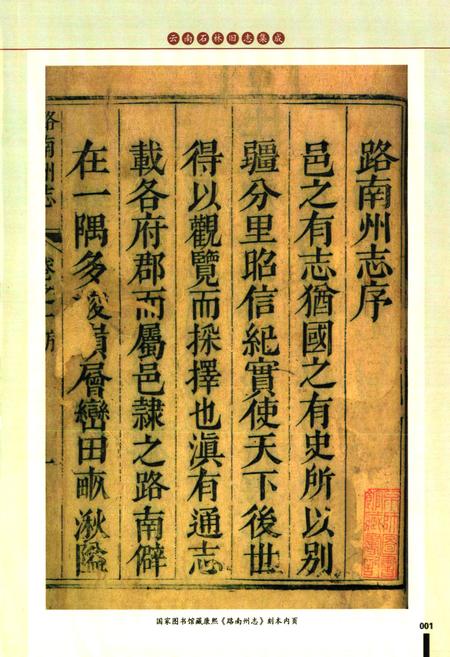 云南石林旧志集成
路南州志序
邑之有志猶國之有史所以別
疆分里昭信紀實使天下後世
得以觀覽而採擇也滇有通志
載各府郡而屬邑隸之路南僻
在一隅多 嶺層巒田畝湫隘
路南州志 卷之一 一
国家图书馆藏康熙《路南州志》刻本内页
001